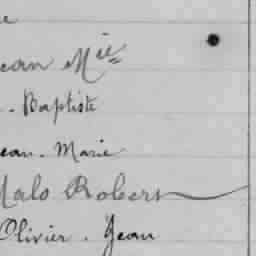 ean Mie
. Baptiste
ean. Marie
Malo Robert
Olivier. Jean